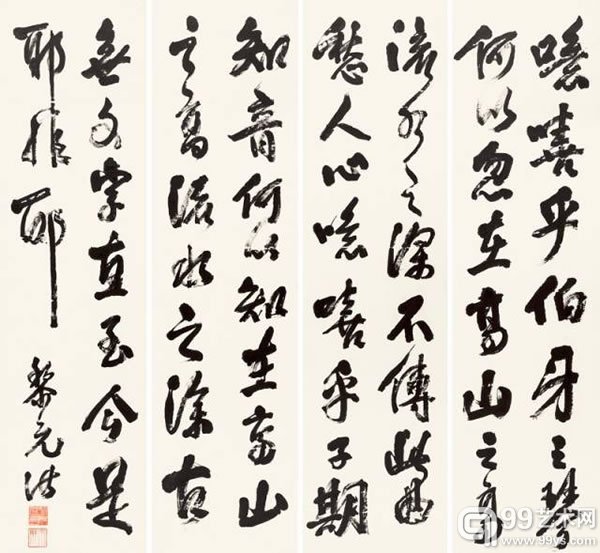 噫嘻乎伯牙之琴
何以忽在高山之高
流水之深不傳此曲
愁人心噫嘻乎子期
知音何以知在高山
之高流水之深古
無文字直至今是
耶非耶
黎元洪
99艺术网
www.99ys.com